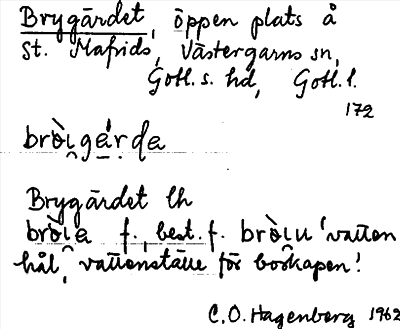 Brygärdet, öppen plats å
St. Mafrids, Västergarns sn,
Gotl. s. hd, Gotl. l.
172
bròi̯gárda
Brygärdet lh
bròi̯a f., best. f. bròi̯u 'vatten
hål, vattenställe för boskapen'.
C.O. Hagenberg 1962